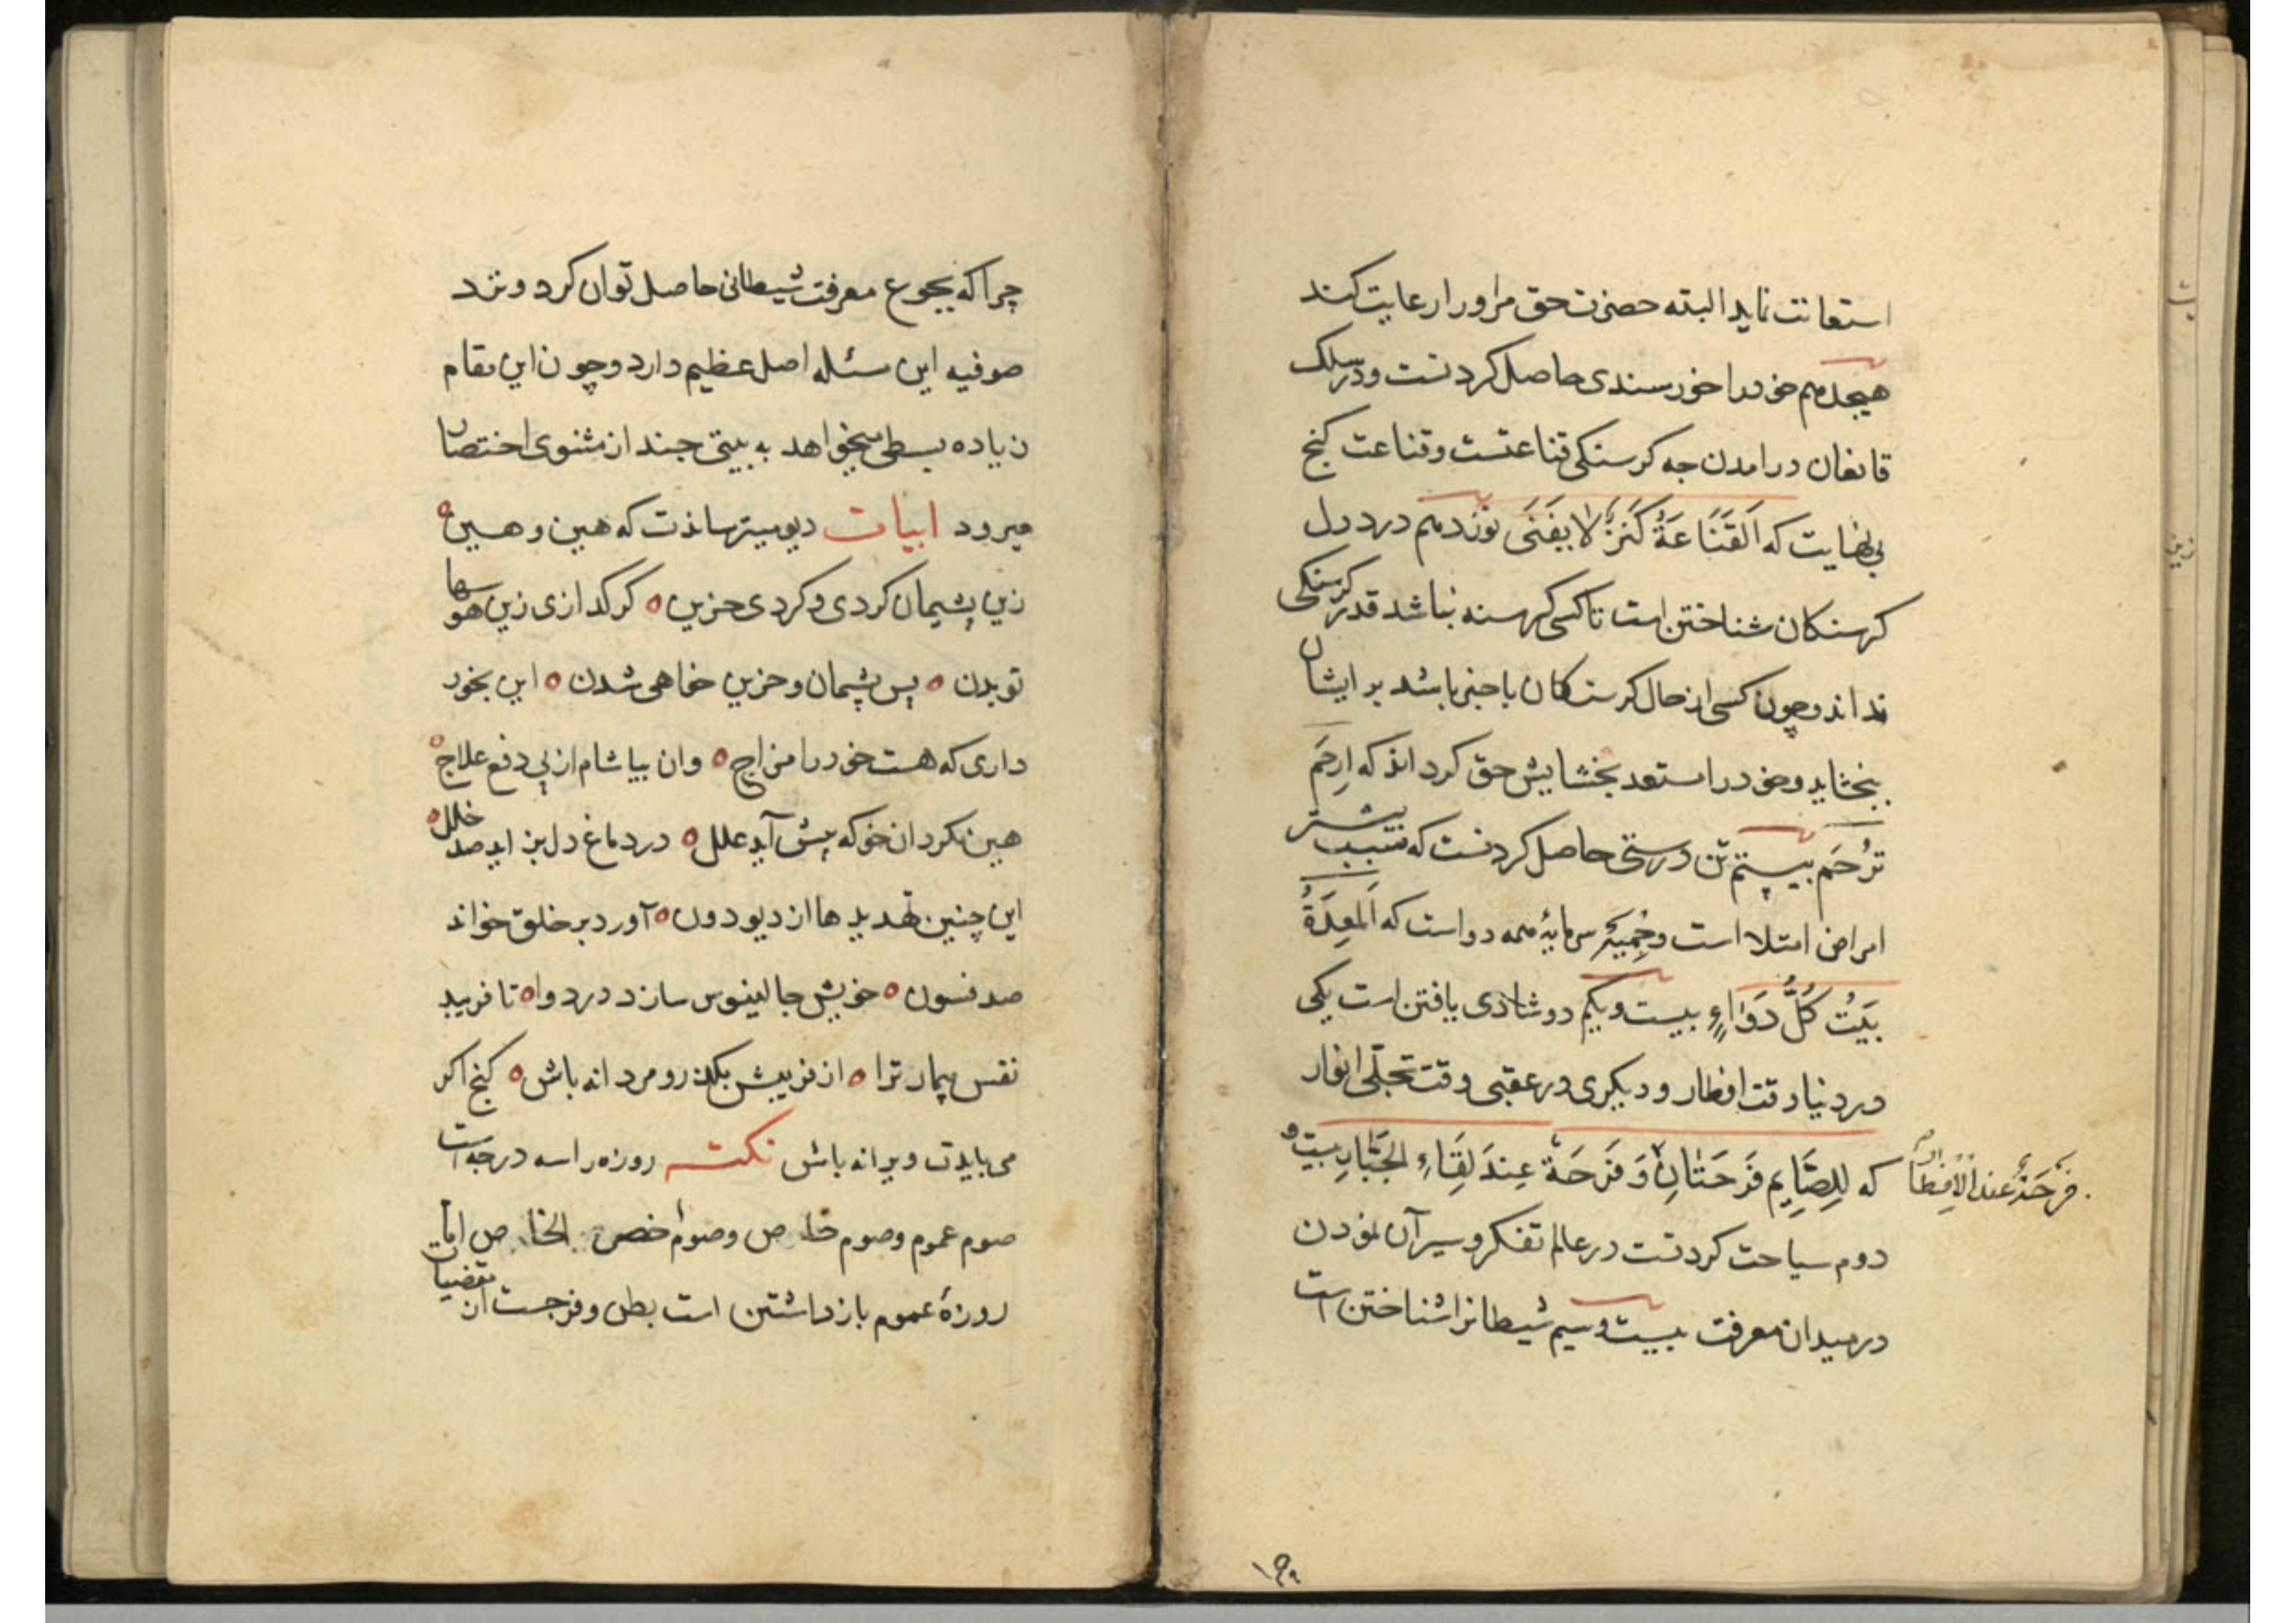 استعانت نماید البته حضرت حق مر اورا رعایت کند
هیجدهم خودرا خورسندی حاصل کردنست ودر سلک
قانعان درامدن جه کرسنکی قناعتست وقناعت کنج
بی نهایت که اَلقَنَاعَةُ كَنزٌ لا يَفنَى نوزدهم درد دل
کرسنکان شناختن است تاکسی کرسنه نباشد قدر کرسنکی
نداند وچون کسی از حال کرسنکان باخبر باشد بر ایشان
ببخشاید وخودرا مستعد بخشایش حق کرداند که اِرحَم
تُرحَم بیستم تن درستی حاصل کردنست که سبب بیشتر
امراض امتلا است وحِمیَه سرمایۀ همه دواست که اَلمَعِدَةُ
بَيتُ كُلِّ دَوَاءٍ بیست ویکم دو شادی یافتن است یکی
در دنیا وقت افطار ودیکری در عقبی وقت تجلّی انوار
که لِلصَّایِمِ فَرحَتَانِ وَفَرحَةٌ عِندَ لِقَاءِ الجَبَّارِ بیست و
فَرحَةٌ عِندَ الاِفطَارِ
دوم سیاحت کردنست در عالم تفکر وسیر آن نمودن
در میدان معرفت بیست وسیم شیطانرا شناختن است
چرا که بجوع معرفت شیطانی حاصل توان کرد ونزد
صوفیه این مسئله اصل عظیم دارد وچون این مقام
زیاده بسطی میخواهد به بیتی جند از مثنوی اختصار
میرود ابیات دیو میترساندت که هین وهین
زین پشیمان کردی و کردی حزین ٥ کر کدازی زین هوسها
تو بدن ٥ پس پشیمان وحزین خواهی شدن ٥ این بخور
داری که هست خودرا مزاج ٥ وان بیاشام از پی دفع علاج ٥
هین مکردان خو که پیش آید علل ٥ در دماغ دل بزاید صد خلل ٥
این چنین تهدیدها از دیو دون ٥ آورد بر خلق خواند
صد فسون ٥ خویش جالینوس سازد در دوا ٥ تا فریبد
نفس بیمار ترا ٥ از فریبش بکذر ومردانه باش ٥ کنج اکر
می بایدت ویرانه باش نکته روزه را سه درجه است
صوم عموم وصوم خاص وصوم اخص الخاص اما
روزۀ عموم بازداشتن است بطن وفرجست از مقتضیات